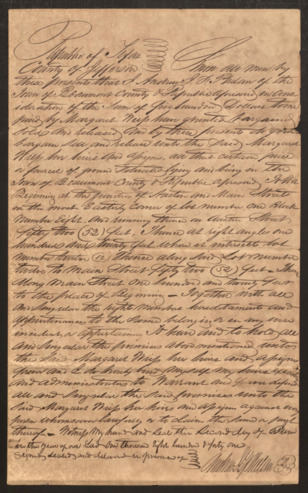 Republic of Texas
County of Jefferson Know all men by
these presents that I Andrew F. of the
Town of Beaumont County & Republic aforesaid in Con-
sideration of the Sum of five hundred Dollars to me
paid by Margaret have granted bargained
Sold and released and by these presents do grant
bargain Sell and release unto the Said Margaret
her heirs and assigns all that certain piece
or parcel of ground Situate lying and being in the
Town of Beaumont County & Republic aforesaid
Beginning at the of and Main Streets
at the most corner of lot number One Block
Number Eight and running thence on Street
fifty two (52) feet, thence at right angles one
hundred and twenty feet where it intersects lot
number thence along Said Lot number
to Main Street fifty two (52) feet - thence
along Main Street one hundred and twenty feet
to the place of Beginning - Together with all
and Singular the rights members hereditaments and
appurtenances to the Same belonging or in any wise
incident or appertaining. To have and to hold all
and Singular the premises above mentioned unto
the Said Margaret her heirs and assigns
forever and I do hereby bind myself my heirs
and administrators to Warrant and forever defend
all and Singular the Said premises unto the
Said Margaret her heirs and assigns against any
person whomsoever lawfully or to claim the Same or any part
thereof - Witness my hand and Seal this Second day of
in the year of our Lord One thousand eight hundred & forty one
Signed sealed and delivered in presence of